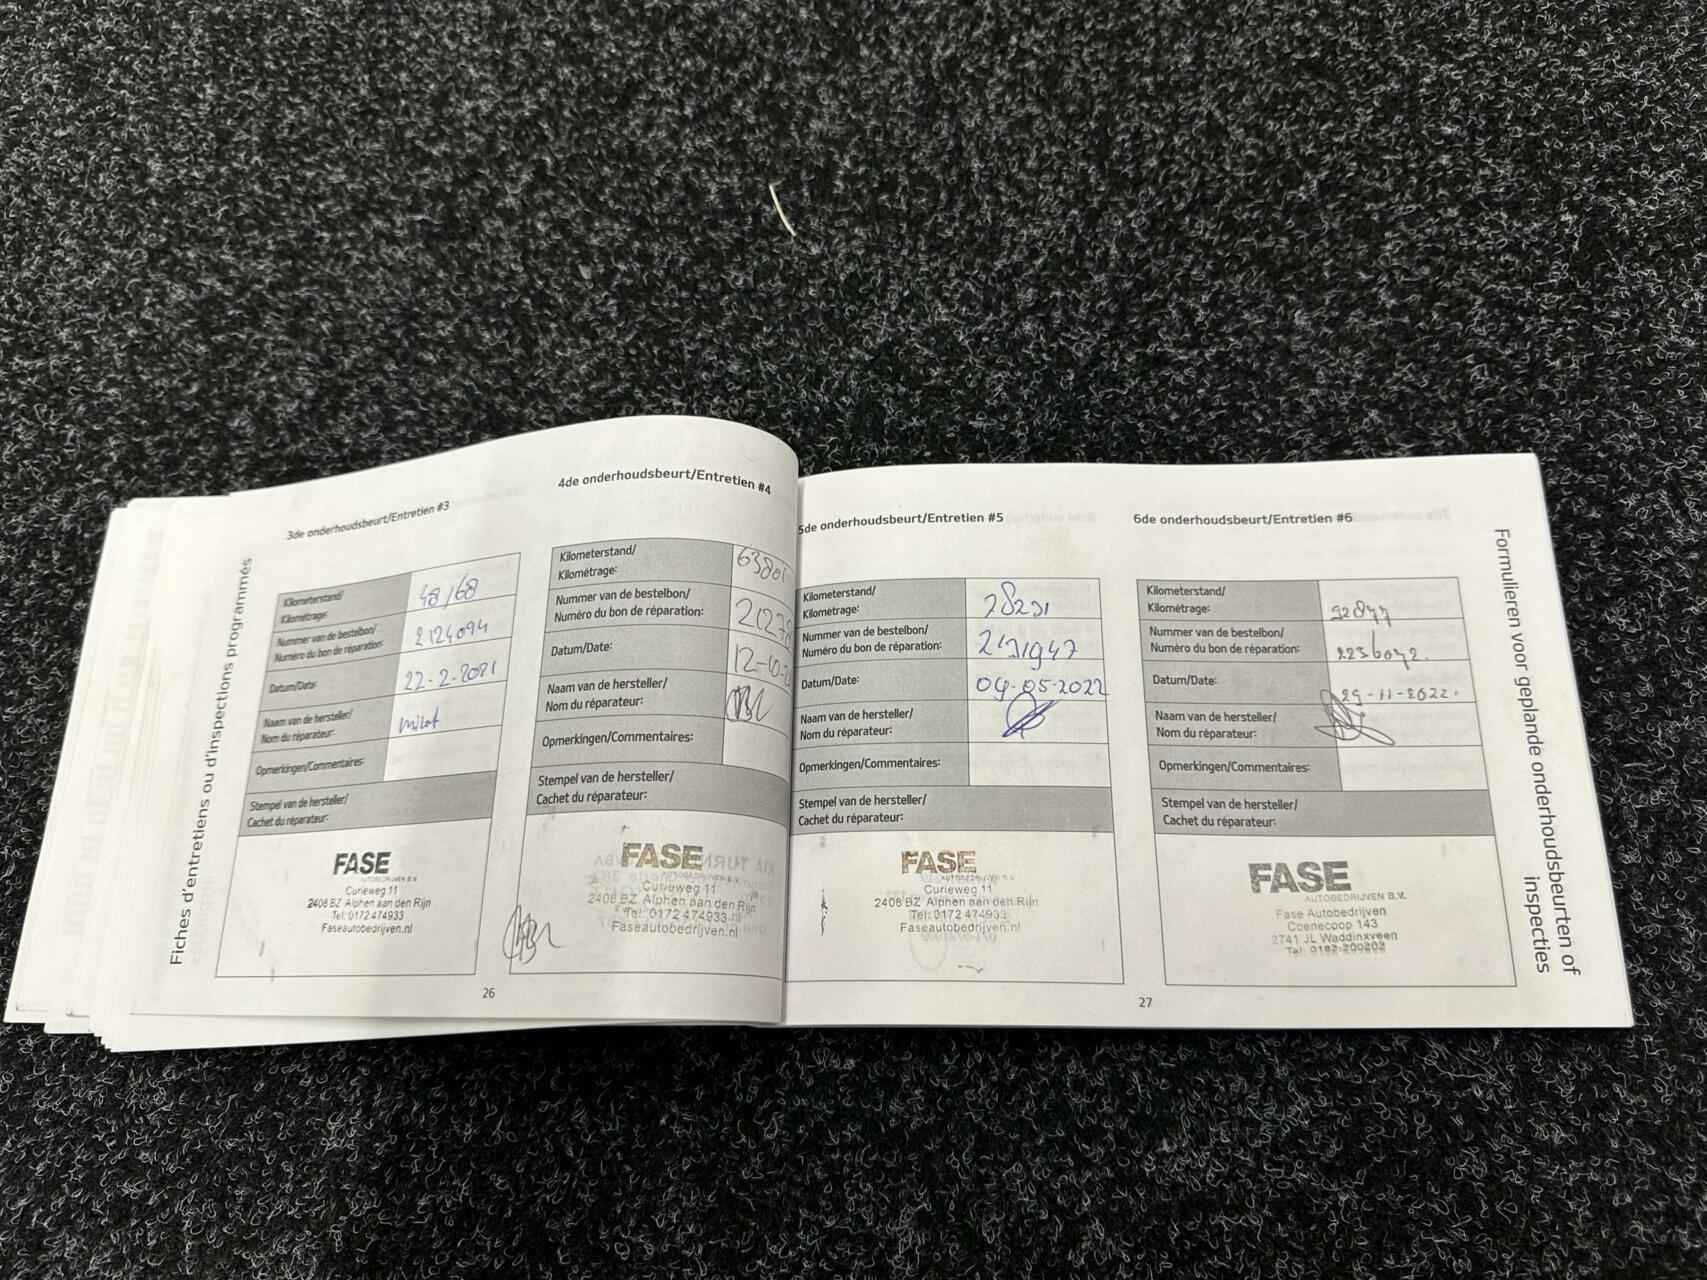 Fiches d'entretiens ou d'inspections programmés
3de onderhoudsbeurt/Entretien #3
Kilometerstand/
Kilométrage:
48168
Nummer van de bestelbon/
Numéro du bon de réparation:
2124094
Datum/Date:
22-2-2021
Naam van de hersteller/
Nom du réparateur:
Opmerkingen/Commentaires:
Stempel van de hersteller/
Cachet du réparateur:
FASE
AUTOBEDRIJVEN B.V.
Curieweg 11
2408 BZ Alphen aan den Rijn
Tel: 0172 474933
Faseautobedrijven.nl
4de onderhoudsbeurt/Entretien #4
Kilometerstand/
Kilométrage:
63801
Nummer van de bestelbon/
Numéro du bon de réparation:
Datum/Date:
12-10-2
Naam van de hersteller/
Nom du réparateur:
Opmerkingen/Commentaires:
Stempel van de hersteller/
Cachet du réparateur:
FASE
Curieweg 11
2408 BZ Alphen aan den Rijn
Tel: 0172 474933
Faseautobedrijven.nl
26
5de onderhoudsbeurt/Entretien #5
Kilometerstand/
Kilométrage:
78231
Nummer van de bestelbon/
Numéro du bon de réparation:
2131947
Datum/Date:
04-05-2022
Naam van de hersteller/
Nom du réparateur:
Opmerkingen/Commentaires:
Stempel van de hersteller/
Cachet du réparateur:
FASE
AUTOBEDRIJVEN B.V.
Curieweg 11
2408 BZ Alphen aan den Rijn
Tel: 0172 474933
Faseautobedrijven.nl
6de onderhoudsbeurt/Entretien #6
Kilometerstand/
Kilométrage:
92877
Nummer van de bestelbon/
Numéro du bon de réparation:
2236072.
Datum/Date:
29-11-2022.
Naam van de hersteller/
Nom du réparateur:
Opmerkingen/Commentaires:
Stempel van de hersteller/
Cachet du réparateur:
FASE
AUTOBEDRIJVEN B.V.
Fase Autobedrijven
Coenecoop 143
2741 JL Waddinxveen
Tel: 0182-200202
27
Formulieren voor geplande onderhoudsbeurten of
inspecties